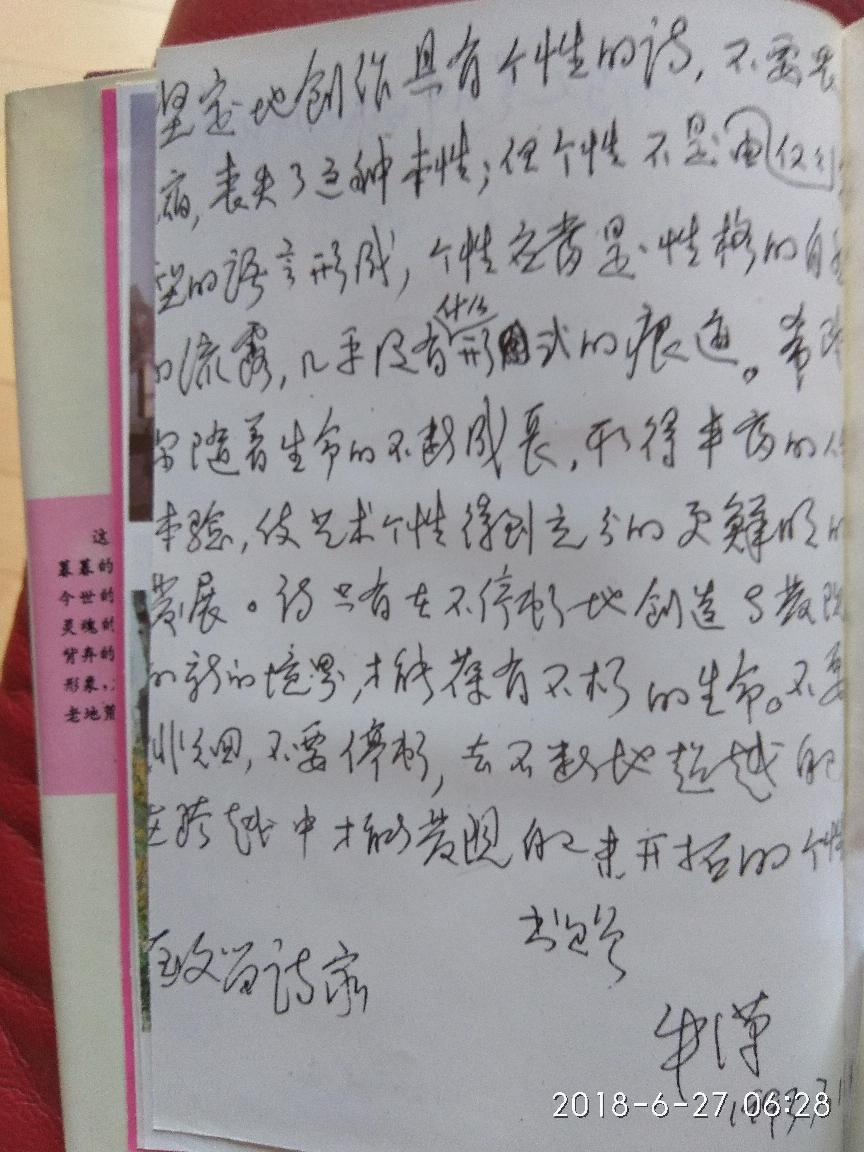 坚定地创作具有个性的诗，不要丧
丧失了这种本性；但个性不是由仅
型的语言形成，个性应当是性格的自
的流露，几乎没有什么形式的痕迹。希
你随着生命的不断成长，形得丰富的
体验，使艺术个性得到充分的更鲜明的
发展。诗只有在不停顿地创造与发现
的新的境界，才能葆有不朽的生命。不要
徘徊，不要停顿，去不断地超越自己
在跨越中才能发现自己未开拓的个性
书包公
致 诗家
牛汉
这
暮暮的
今世的
灵魂的
背弃的
形象，
老地荒
2018-6-27 06:28